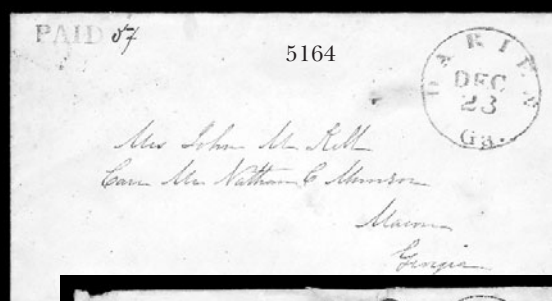 PAID 07
5164
DARIEN
DEC
23
Ga.
Mrs John M Kell
Care Mr Nathan C Munson
Macon
Georgia